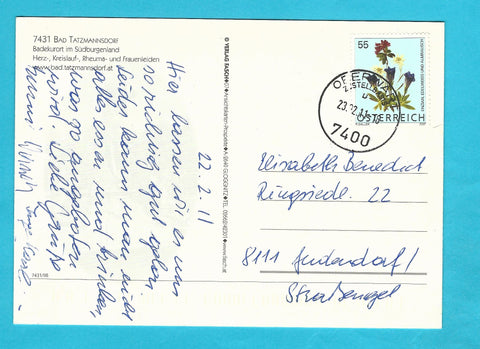 7431 BAD TATZMANNSDORF
Badekurort im Südburgenland
Herz-, Kreislauf-, Rheuma- und Frauenleiden
www.bad.tatzmannsdorf.at
22.2.11
Hier lassen wir es uns
so richtig gut gehen
Leider kann man nicht
alles essen und trinken,
was so angeboten
wird. Liebe Grüße
7431/08
© VERLAG FASCHING
55
ÖSTERREICH
7400
Elisabeth Benedict
Ringsiedl. 22
8111 Judendorf/
Straßengel